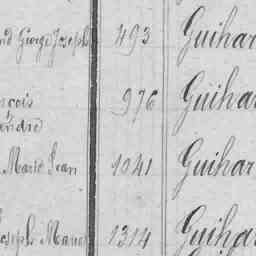 George Joseph 493 Guihar
976 Guihar
Marie Jean 1041 Guihar
Joseph Marie 1314 Guihar